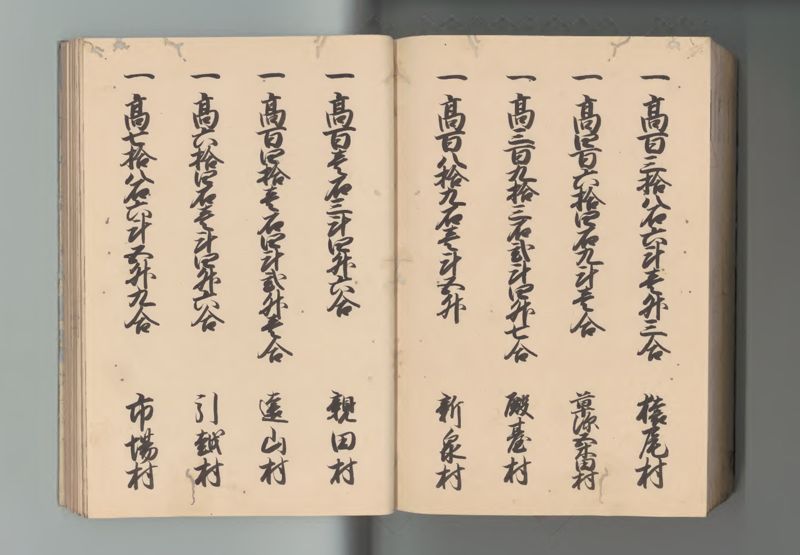 一 高百三拾八石六斗壱升三合 椎尾村
一 高四百六拾四石九斗壱合
一 高三百九拾三石弐斗四升七合 殿臺村
一 高百八拾九石壱斗五升 新泉村
一 高百壱石三斗四升六合 親田村
一 高百四拾壱石四斗弐升壱合 遠山村
一 高六拾四石壱斗四升六合 引越村
一 高七拾八石六斗五升九合 市場村